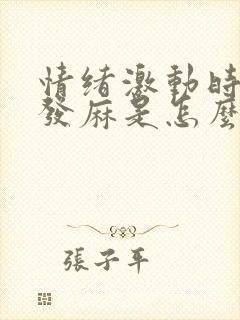 情緒激動時
發麻是怎麼
張子平